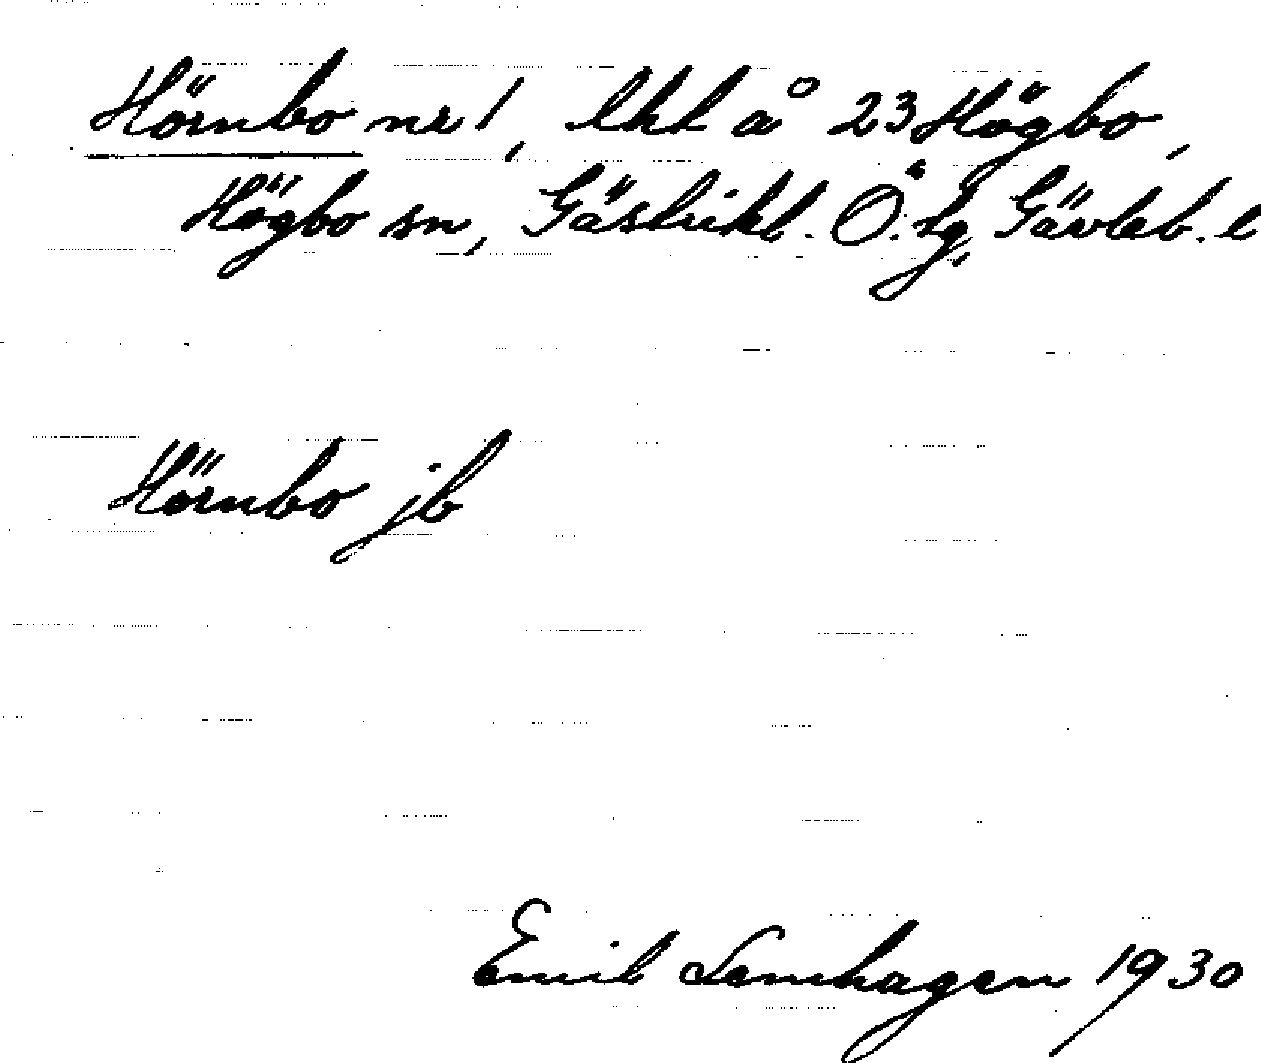 Hörnbo nr 1, lht å 23 Högbo,
Högbo sn, Gästrikl. Ö. tg, Gävleb. l
Hörnbo jb
Emil Lenhagen 1930